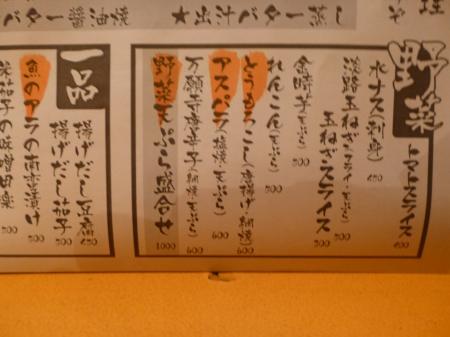 バター醤油焼
★出汁バター蒸し
野菜
トマトスライス 400
水ナス(刺身) 450
淡路玉ねぎ(スライス・天ぷら) 500
玉ねぎスライス 500
金時芋(天ぷら) 500
れんこん(天ぷら) 500
とうもろこし(唐揚げ・網焼) 600
アスパラ(塩焼・天ぷら) 600
万願寺唐辛子(網焼・天ぷら) 600
野菜天ぷら盛合せ 1000
一品
揚げだし豆腐 450
揚げだし茄子 500
魚のアラの南蛮漬け 500
米茄子の味噌田楽